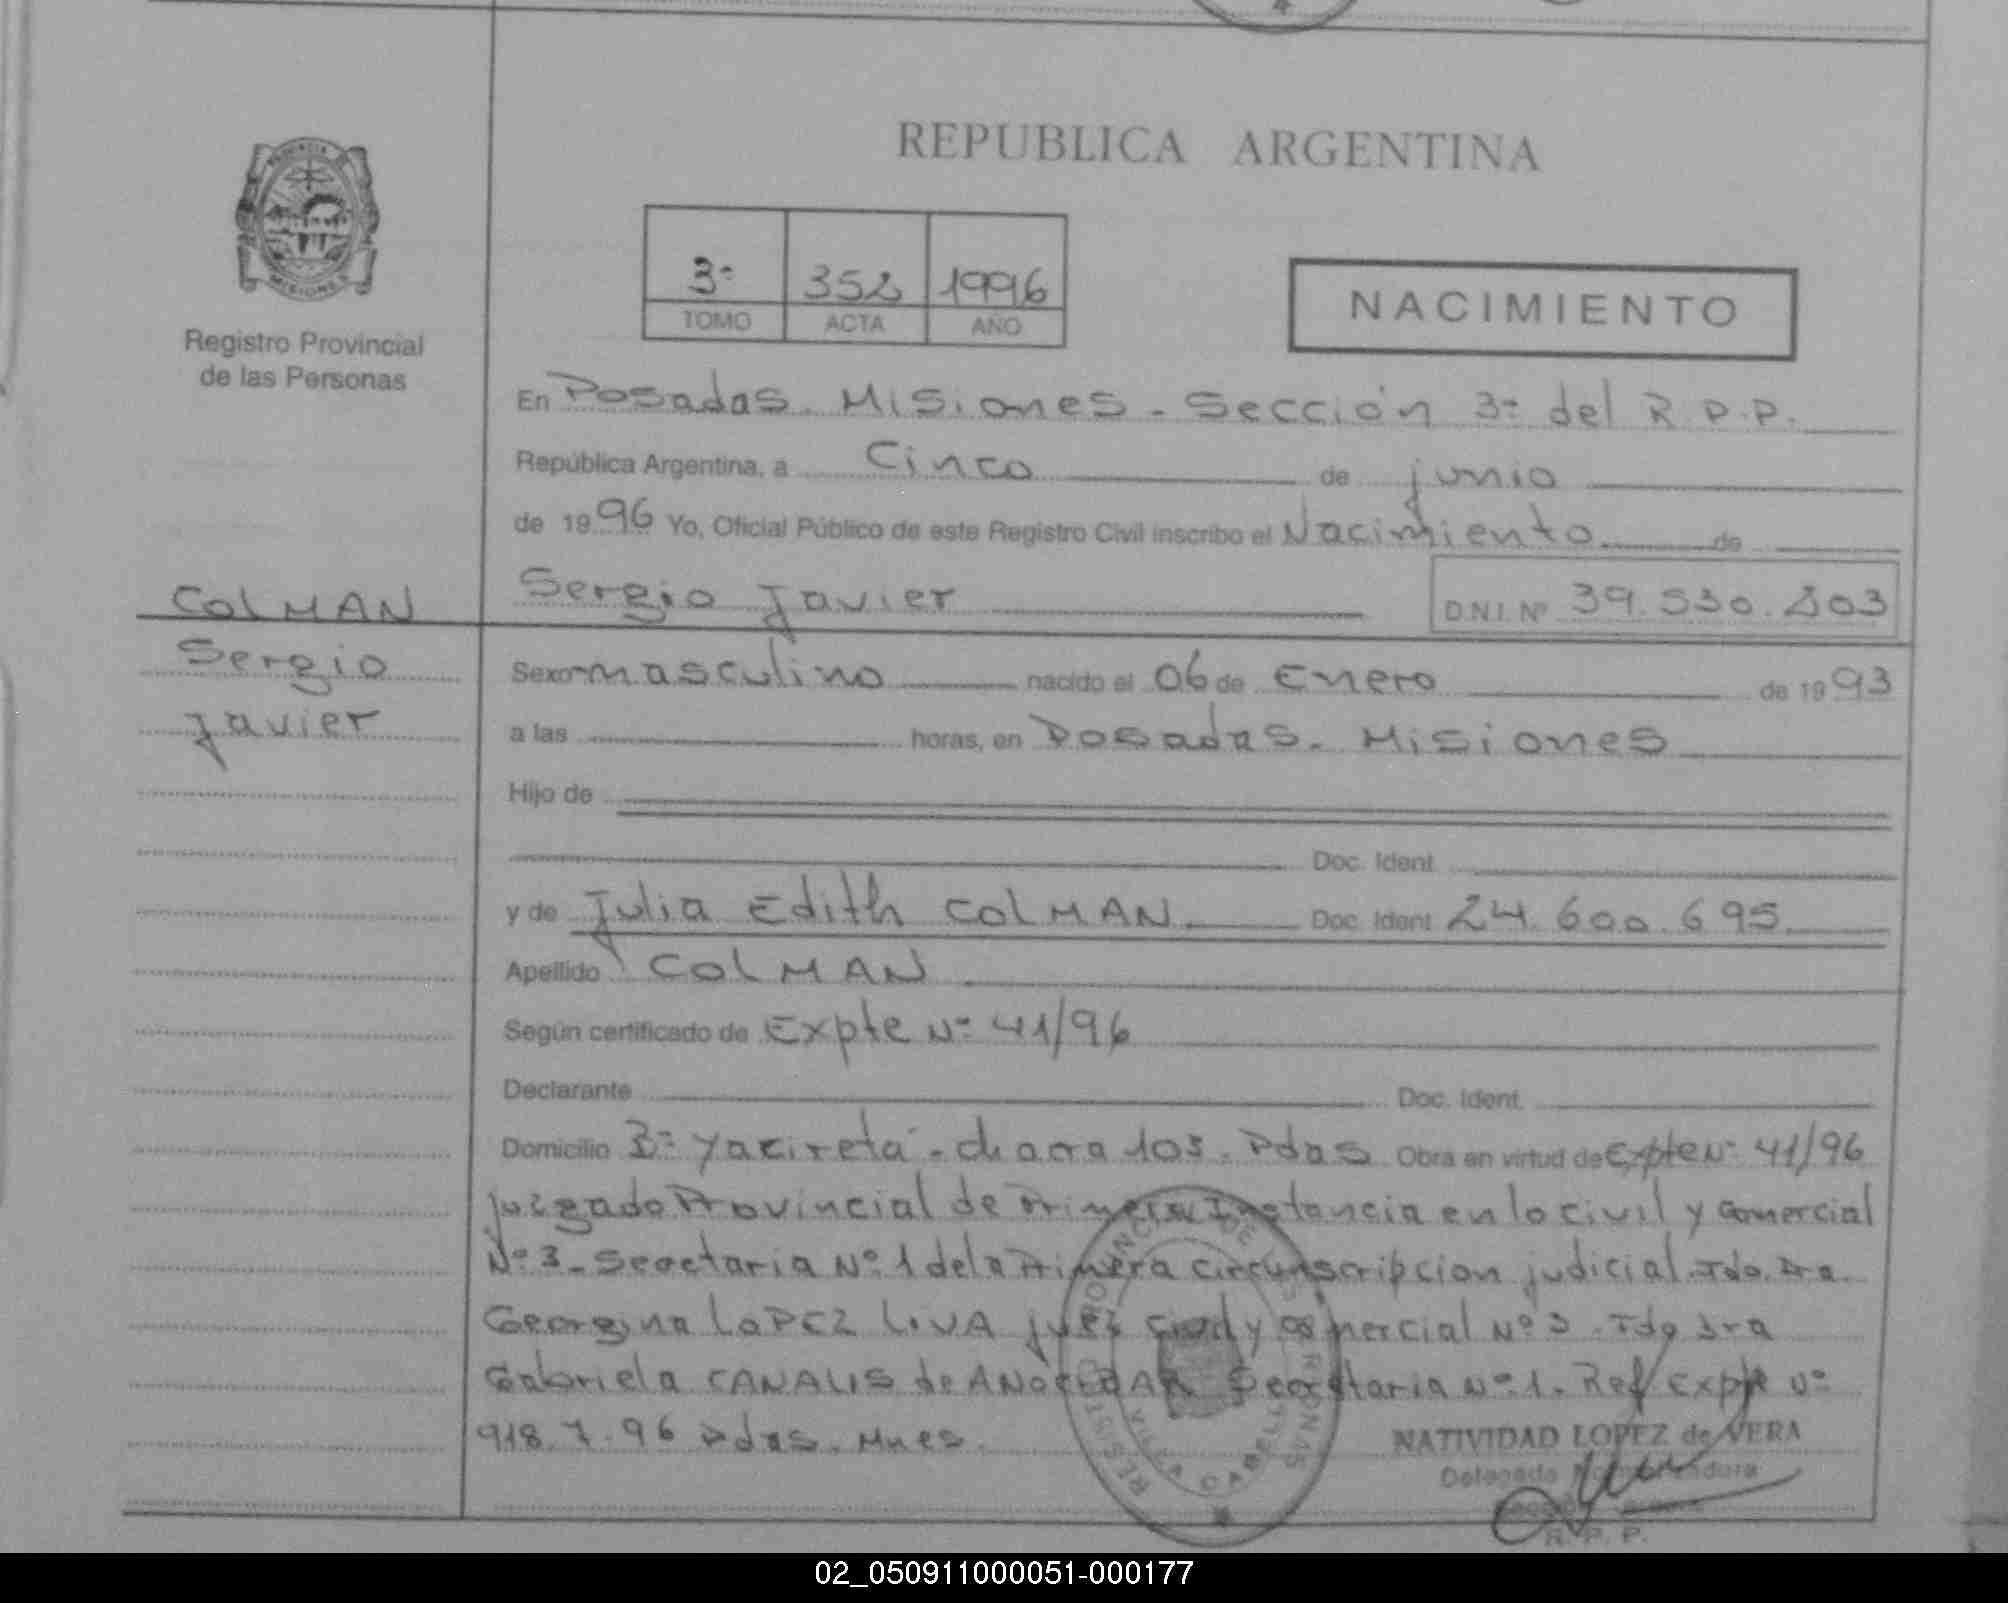 REPUBLICA ARGENTINA
PROVINCIA
MISIONES
Registro Provincial
de las Personas
3º 352 1996
TOMO ACTA AÑO
NACIMIENTO
En Posadas. Misiones - Sección 3º del R.P.P.
República Argentina, a Cinco de junio
de 1996 Yo, Oficial Público de este Registro Civil inscribo el Nacimiento de
COLMAN Sergio Javier D.N.I. Nº 39.530.803
Sergio Sexo masculino nacido el 06 de Enero de 1993
Javier a las horas, en Posadas. Misiones
Hijo de
Doc. Ident.
y de Julia Edith COLMAN Doc. Ident 24.600.695
Apellido COLMAN
Según certificado de Expte Nº 41/96
Declarante Doc. Ident.
Domicilio Bº Yacireta - chacra 103. Pdas Obra en virtud de Expte Nº 41/96
Juzgado Provincial de Primera Instancia en lo civil y Comercial
Nº 3 - Secretaria Nº 1 de la Primera circunscripcion judicial. Fdo. Dra.
Georgina LOPEZ LIVA juez Civil y comercial Nº 3. Fdo Dra
Gabriela CANALIS de Secretaria Nº 1. Ref Expte Nº
918.7.96 Pdas. Mnes.
REGISTRO PROVINCIAL DE LAS PERSONAS
VILLA CABELLO
NATIVIDAD LOPEZ de VERA
Delegada
R. P. P.
02_050911000051-000177